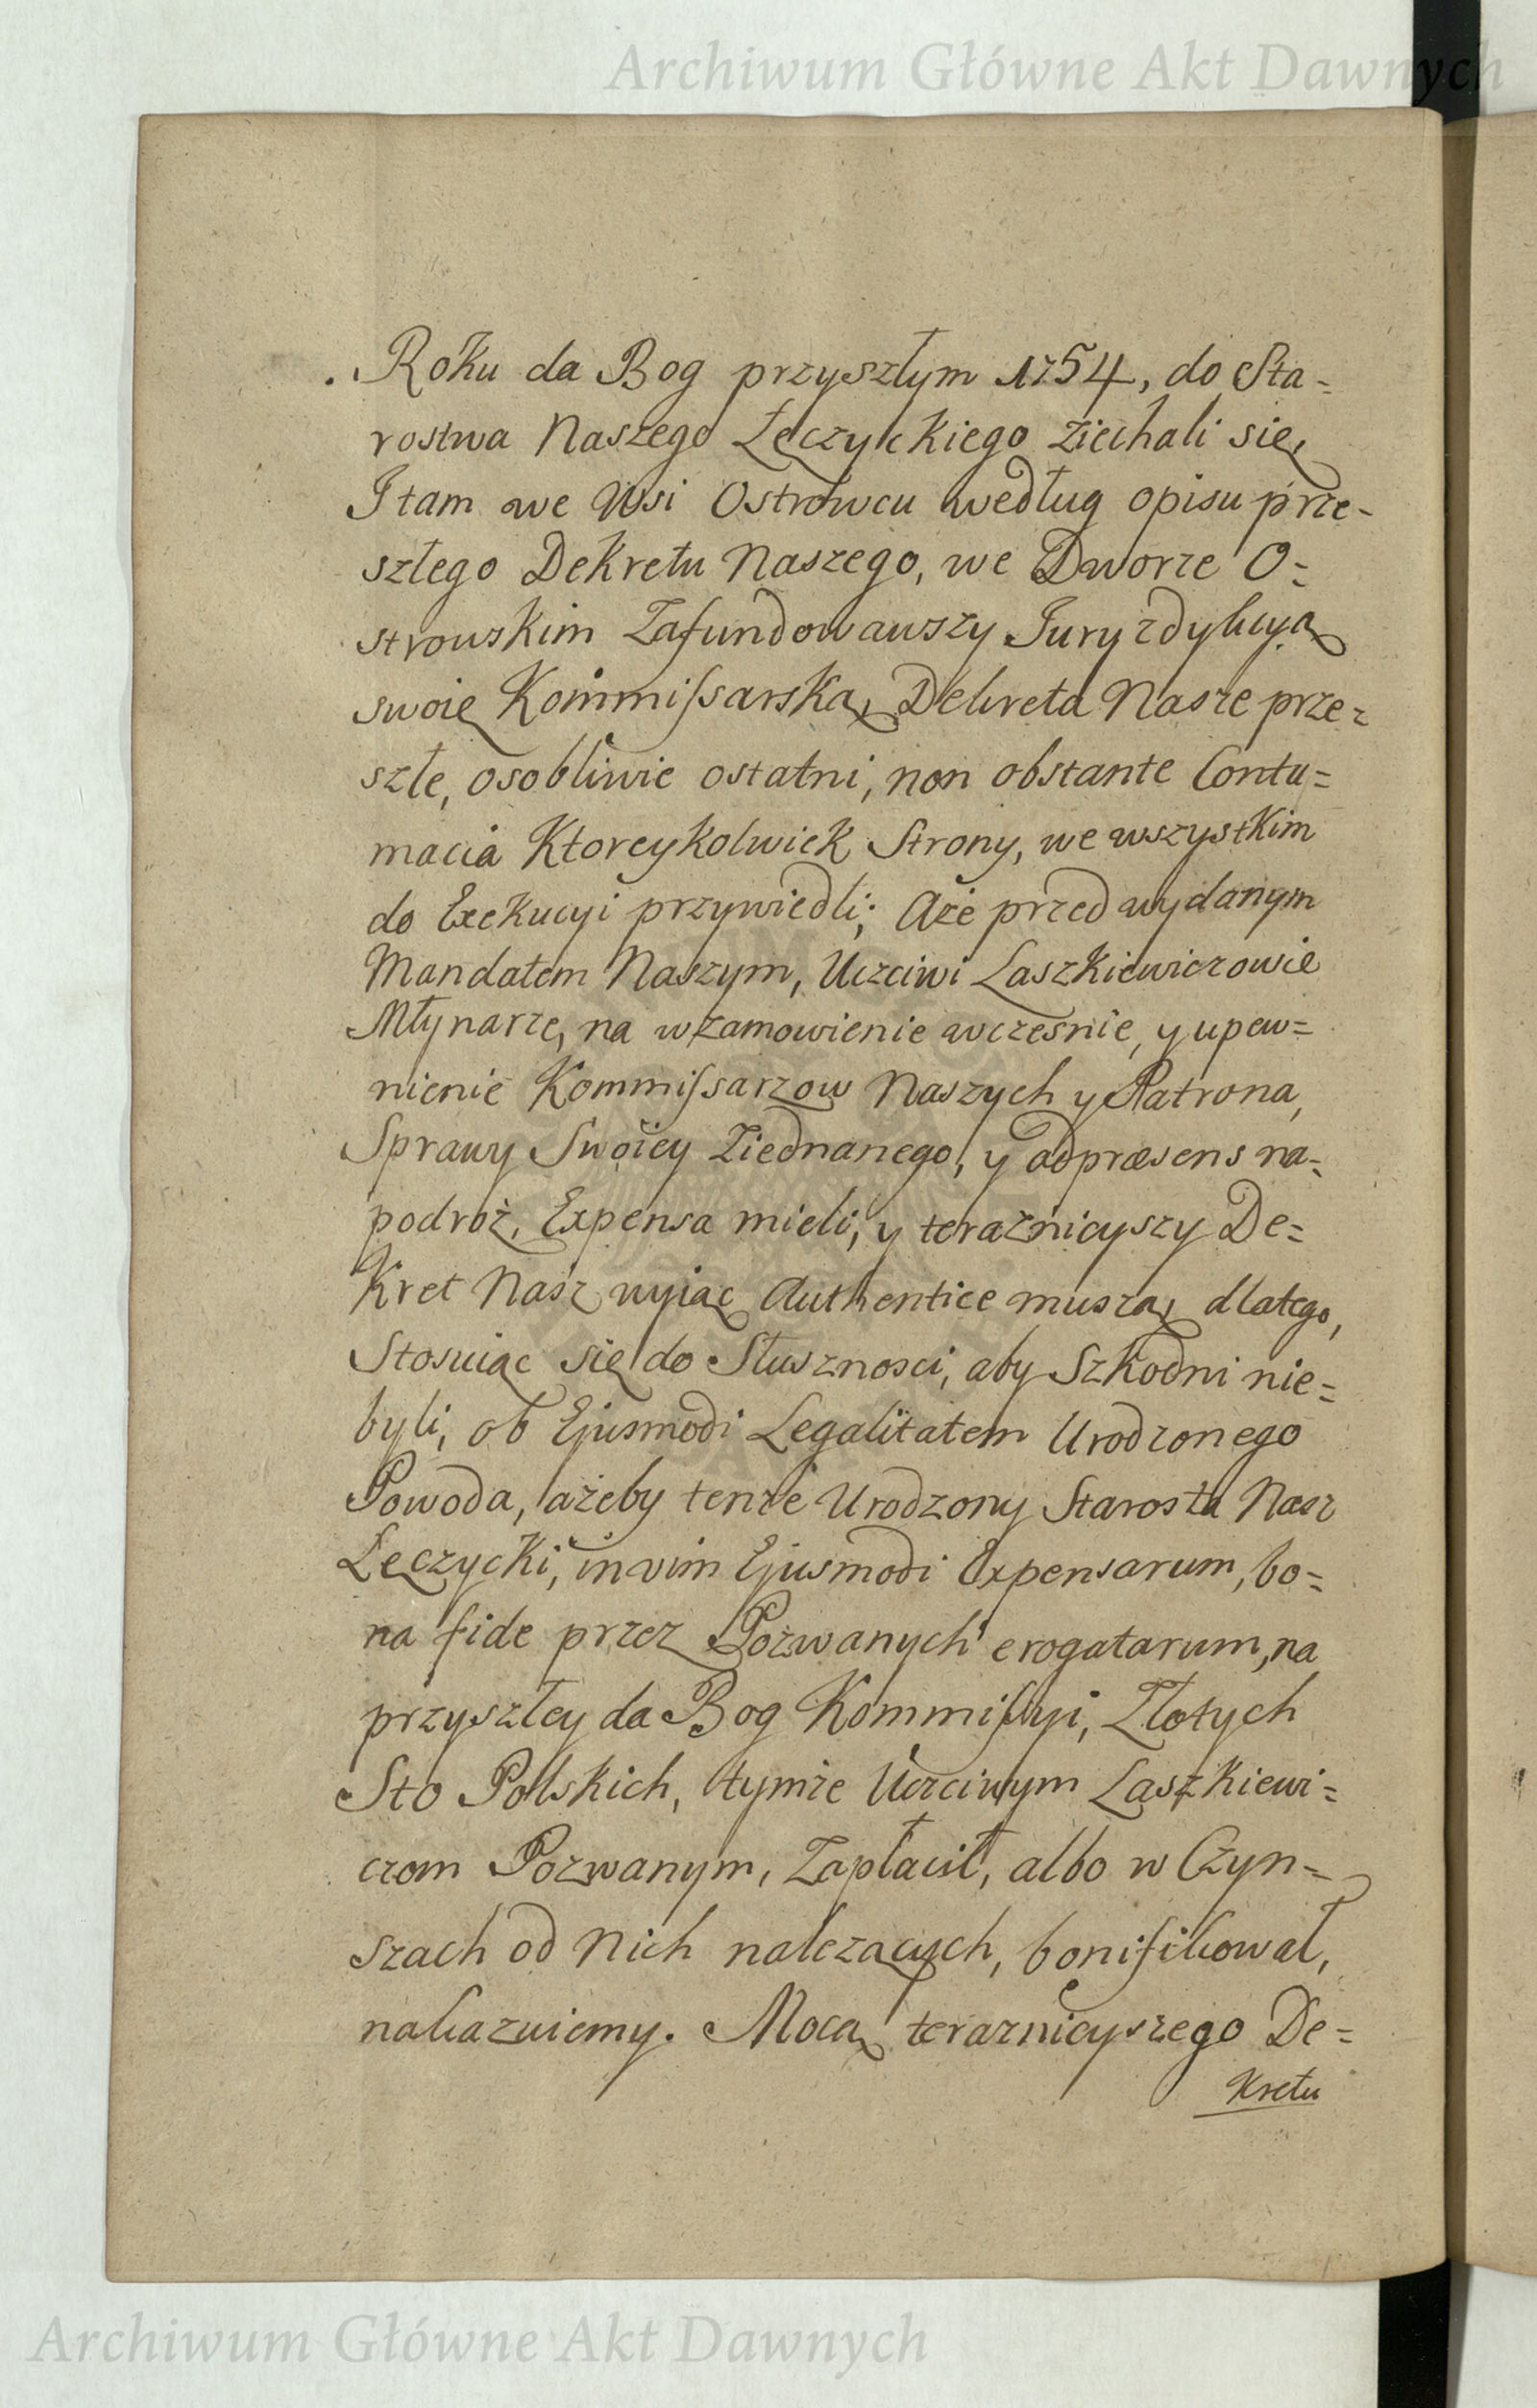 Archiwum Główne Akt Dawnych
. Roku da Bog przyszłym 1754, do Sta=
rostwa Naszego Łęczyckiego ziechali się,
I tam we Wsi Ostrowcu według opisu prze-
szłego Dekretu Naszego, we Dworze O=
strowskim Zafundowawszy Juryzdykcyą
swoię Kommissarską, Dekreta Nasze prze=
szłe, osobliwie ostatni, non obstante Contu=
macia Ktoreykolwiek Strony, we wszystkim
do Exekucyi przywiedli; Aże przed wydanym
Mandatem Naszym, Uczciwi Laszkiewiczowie
Młynarze, na wzamowienie wczesnie, y upew=
nienie Kommissarzow Naszych y Patrona,
Sprawy Swoiey Ziednanego, y adpræsens na=
podroż, Expensa mieli, y teraznieyszy De=
Kret Nasz wyiąć Authentice muszą, dlatego,
Stosuiąc się do Słusznosci, aby Szkodni nie=
byli, ob Ejusmodi Legalitatem Urodzonego
Powoda, ażeby tenże Urodzony Starosta Nasz
Łęczycki, in vim Ejusmodi Expensarum, bo=
na fide przez Pozwanych erogatarum, na
przyszłey da Bog Kommissyi, Złotych
Sto Polskich, tymże Uczciwym Laszkiewi=
czom Pozwanym, Zapłacił, albo w Czyn=
szach od Nich należących, bonifikował,
nakazuiemy. Mocą teraznieyszego De=
Kretu
Archiwum Główne Akt Dawnych